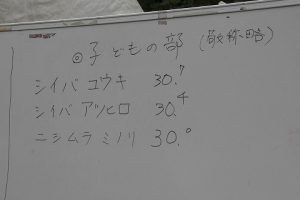 ◎子どもの部 (敬称略)
シイバ ユウキ 30.7
シイバ アツヒロ 30.4
ニシムラ ミノリ 30.0